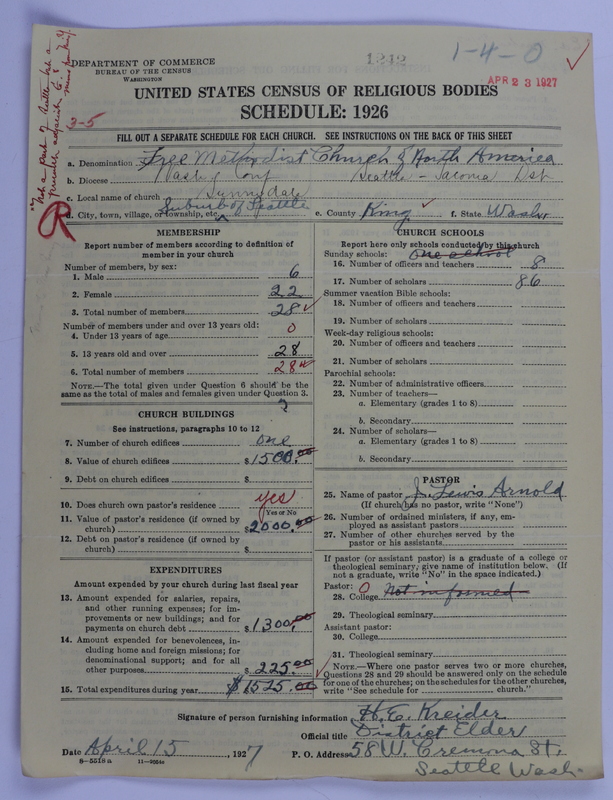 1-4-0
1242
DEPARTMENT OF COMMERCE
BUREAU OF THE CENSUS
WASHINGTON
APR 23 1927
UNITED STATES CENSUS OF RELIGIOUS BODIES
SCHEDULE: 1926
3-5
FILL OUT A SEPARATE SCHEDULE FOR EACH CHURCH. SEE INSTRUCTIONS ON THE BACK OF THIS SHEET
a. Denomination Free Methodist Church of North America
b. Diocese Wash. Conf Seattle - Tacoma Dst
c. Local name of church Sunnydale
Suburb of Seattle
R
d. City, town, village, or township, etc. e. County King f. State Wash.
MEMBERSHIP
Report number of members according to definition of
member in your church
Number of members, by sex:
1. Male 6
2. Female 22
3. Total number of members 28
Number of members under and over 13 years old:
4. Under 13 years of age 0
5. 13 years old and over 28
6. Total number of members 28
NOTE.—The total given under Question 6 should be the
same as the total of males and females given under Question 3.
CHURCH BUILDINGS
See instructions, paragraphs 10 to 12
7. Number of church edifices one
8. Value of church edifices $1500.00
9. Debt on church edifices $
10. Does church own pastor's residence yes
Yes or No
11. Value of pastor's residence (if owned by
church) $2000.00
12. Debt on pastor's residence (if owned by
church) $
EXPENDITURES
Amount expended by your church during last fiscal year
13. Amount expended for salaries, repairs,
and other running expenses; for im-
provements or new buildings; and for
payments on church debt $1300.
14. Amount expended for benevolences, in-
cluding home and foreign missions; for
denominational support; and for all
other purposes $225.00
15. Total expenditures during year $1525.00
CHURCH SCHOOLS
Report here only schools conducted by this church
Sunday schools: one school
16. Number of officers and teachers 8
17. Number of scholars 86
Summer vacation Bible schools:
18. Number of officers and teachers
19. Number of scholars
Week-day religious schools:
20. Number of officers and teachers
21. Number of scholars
Parochial schools:
22. Number of administrative officers
23. Number of teachers—
a. Elementary (grades 1 to 8)
b. Secondary
24. Number of scholars—
a. Elementary (grades 1 to 8)
b. Secondary
PASTOR
25. Name of pastor J. Lewis Arnold
(If church has no pastor, write "None")
26. Number of ordained ministers, if any, em-
ployed as assistant pastors
27. Number of other churches served by the
pastor or his assistants
If pastor (or assistant pastor) is a graduate of a college or
theological seminary, give name of institution below. (If
not a graduate, write "No" in the space indicated.)
Pastor: 0
28. College Not informed
29. Theological seminary
Assistant pastor:
30. College
31. Theological seminary
NOTE.—Where one pastor serves two or more churches,
Questions 28 and 29 should be answered only on the schedule
for one of the churches; on the schedules for the other churches,
write "See schedule for church."
Signature of person furnishing information H. E. Kreider
Official title District Elder
Date April 15, 1927 P. O. Address 58 W. Cremona St.
8-5518a Seattle Wash.